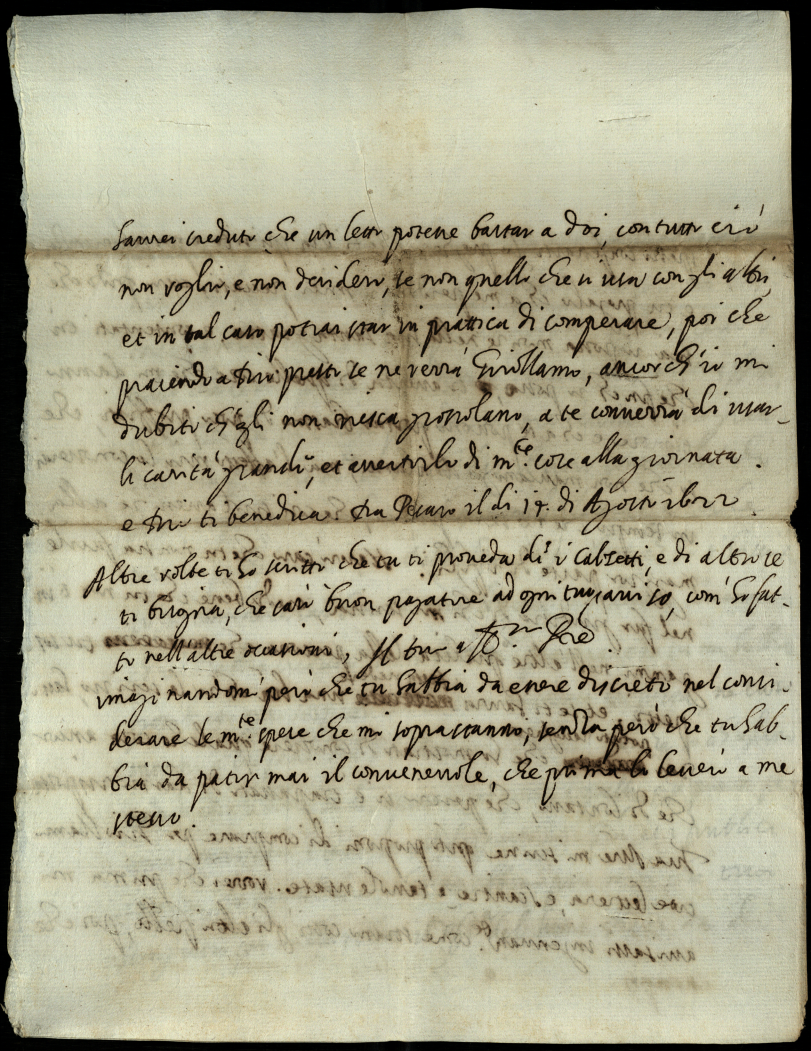 havrei creduto che un letto potesse bastar a doi, con tutto ciò
non voglio, e non desidero, se non quello che si usa con gli altri,
et in tal caso potrai star in prattica di comperare, poi che
piacendo a Dio presto se ne verrà Girollamo, ancor ch'io mi
dubito ch'egli non riesca grossolano, a te converrà di usar-
li carità grande, et avertirlo di m.te cose alla giornata.
e Dio ti benedica. Da Pesaro il di 14. di Agosto
Altre volte ti ho scritto che tu ti proveda di i calzetti, e di altro se
ti bisogna, che sarò buon pagatore ad ogni tuo, com' ho fat-
to nell'altre occasioni, Il tuo Pre
imaginandomi però che tu habbia da essere discreto nel consi-
derare le m.te spese che mi soprastanno, senza però che tu hab-
bia da patir mai il convenevole, che prima lo leverò a me
stesso.